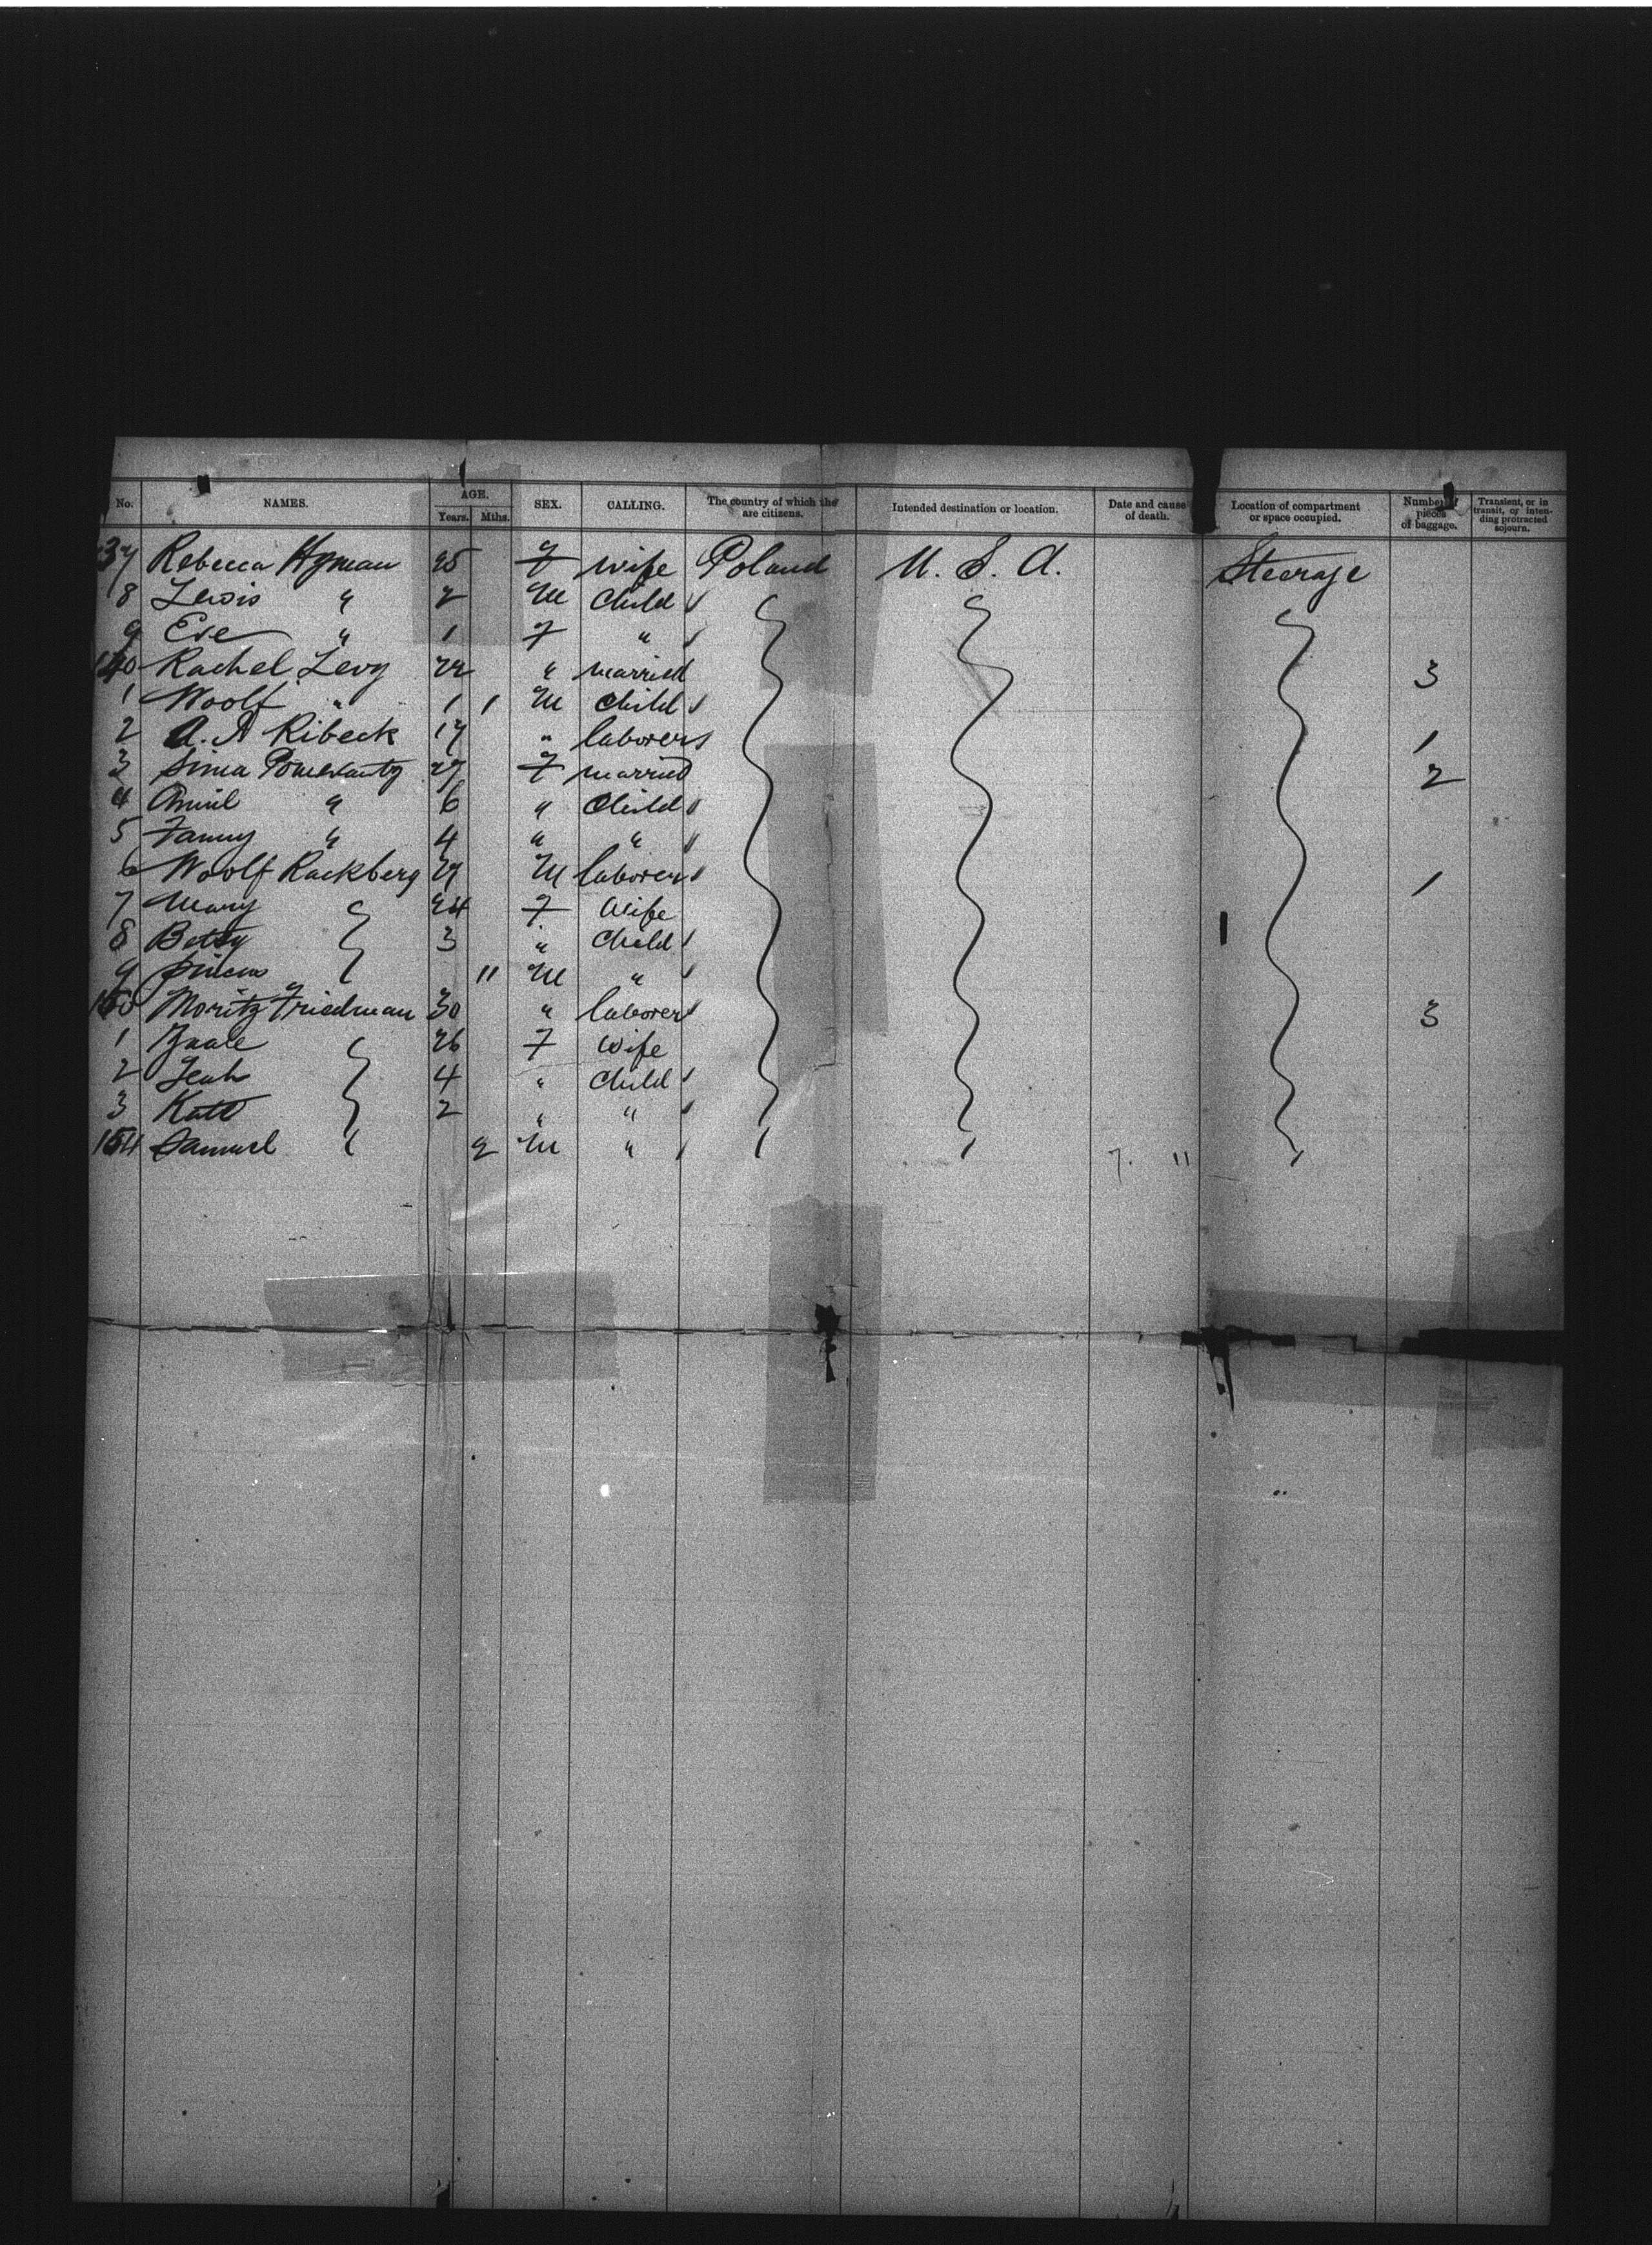 No. NAMES. AGE. Years. Mths. SEX. CALLING. The country of which the are citizens. Intended destination or location. Date and cause of death. Location of compartment or space occupied. Number of pieces of baggage. Transient, or in transit, or intending protracted sojourn.
37 Rebecca Hyman 25 F wife Poland U. S. A. Steerage
8 Lewis " 2 M Child
9 Eve " 1 F "
140 Rachel Levy 22 " married 3
1 Woolf " 1 1 M Child
2 A. A Ribeck 17 " laborer 1
3 Sima Pomerantz 27 F married 2
4 " 6 " Child
5 Fanny " 4 " "
6 Woolf Rackberg 29 M laborer 1
7 Mary 24 F Wife
8 Betsy 3 " Child
9 11 M "
150 Moritz Friedman 30 " laborer 3
1 26 F Wife
2 Leah 4 " Child
3 Kate 2 " "
154 Samuel 9 M "